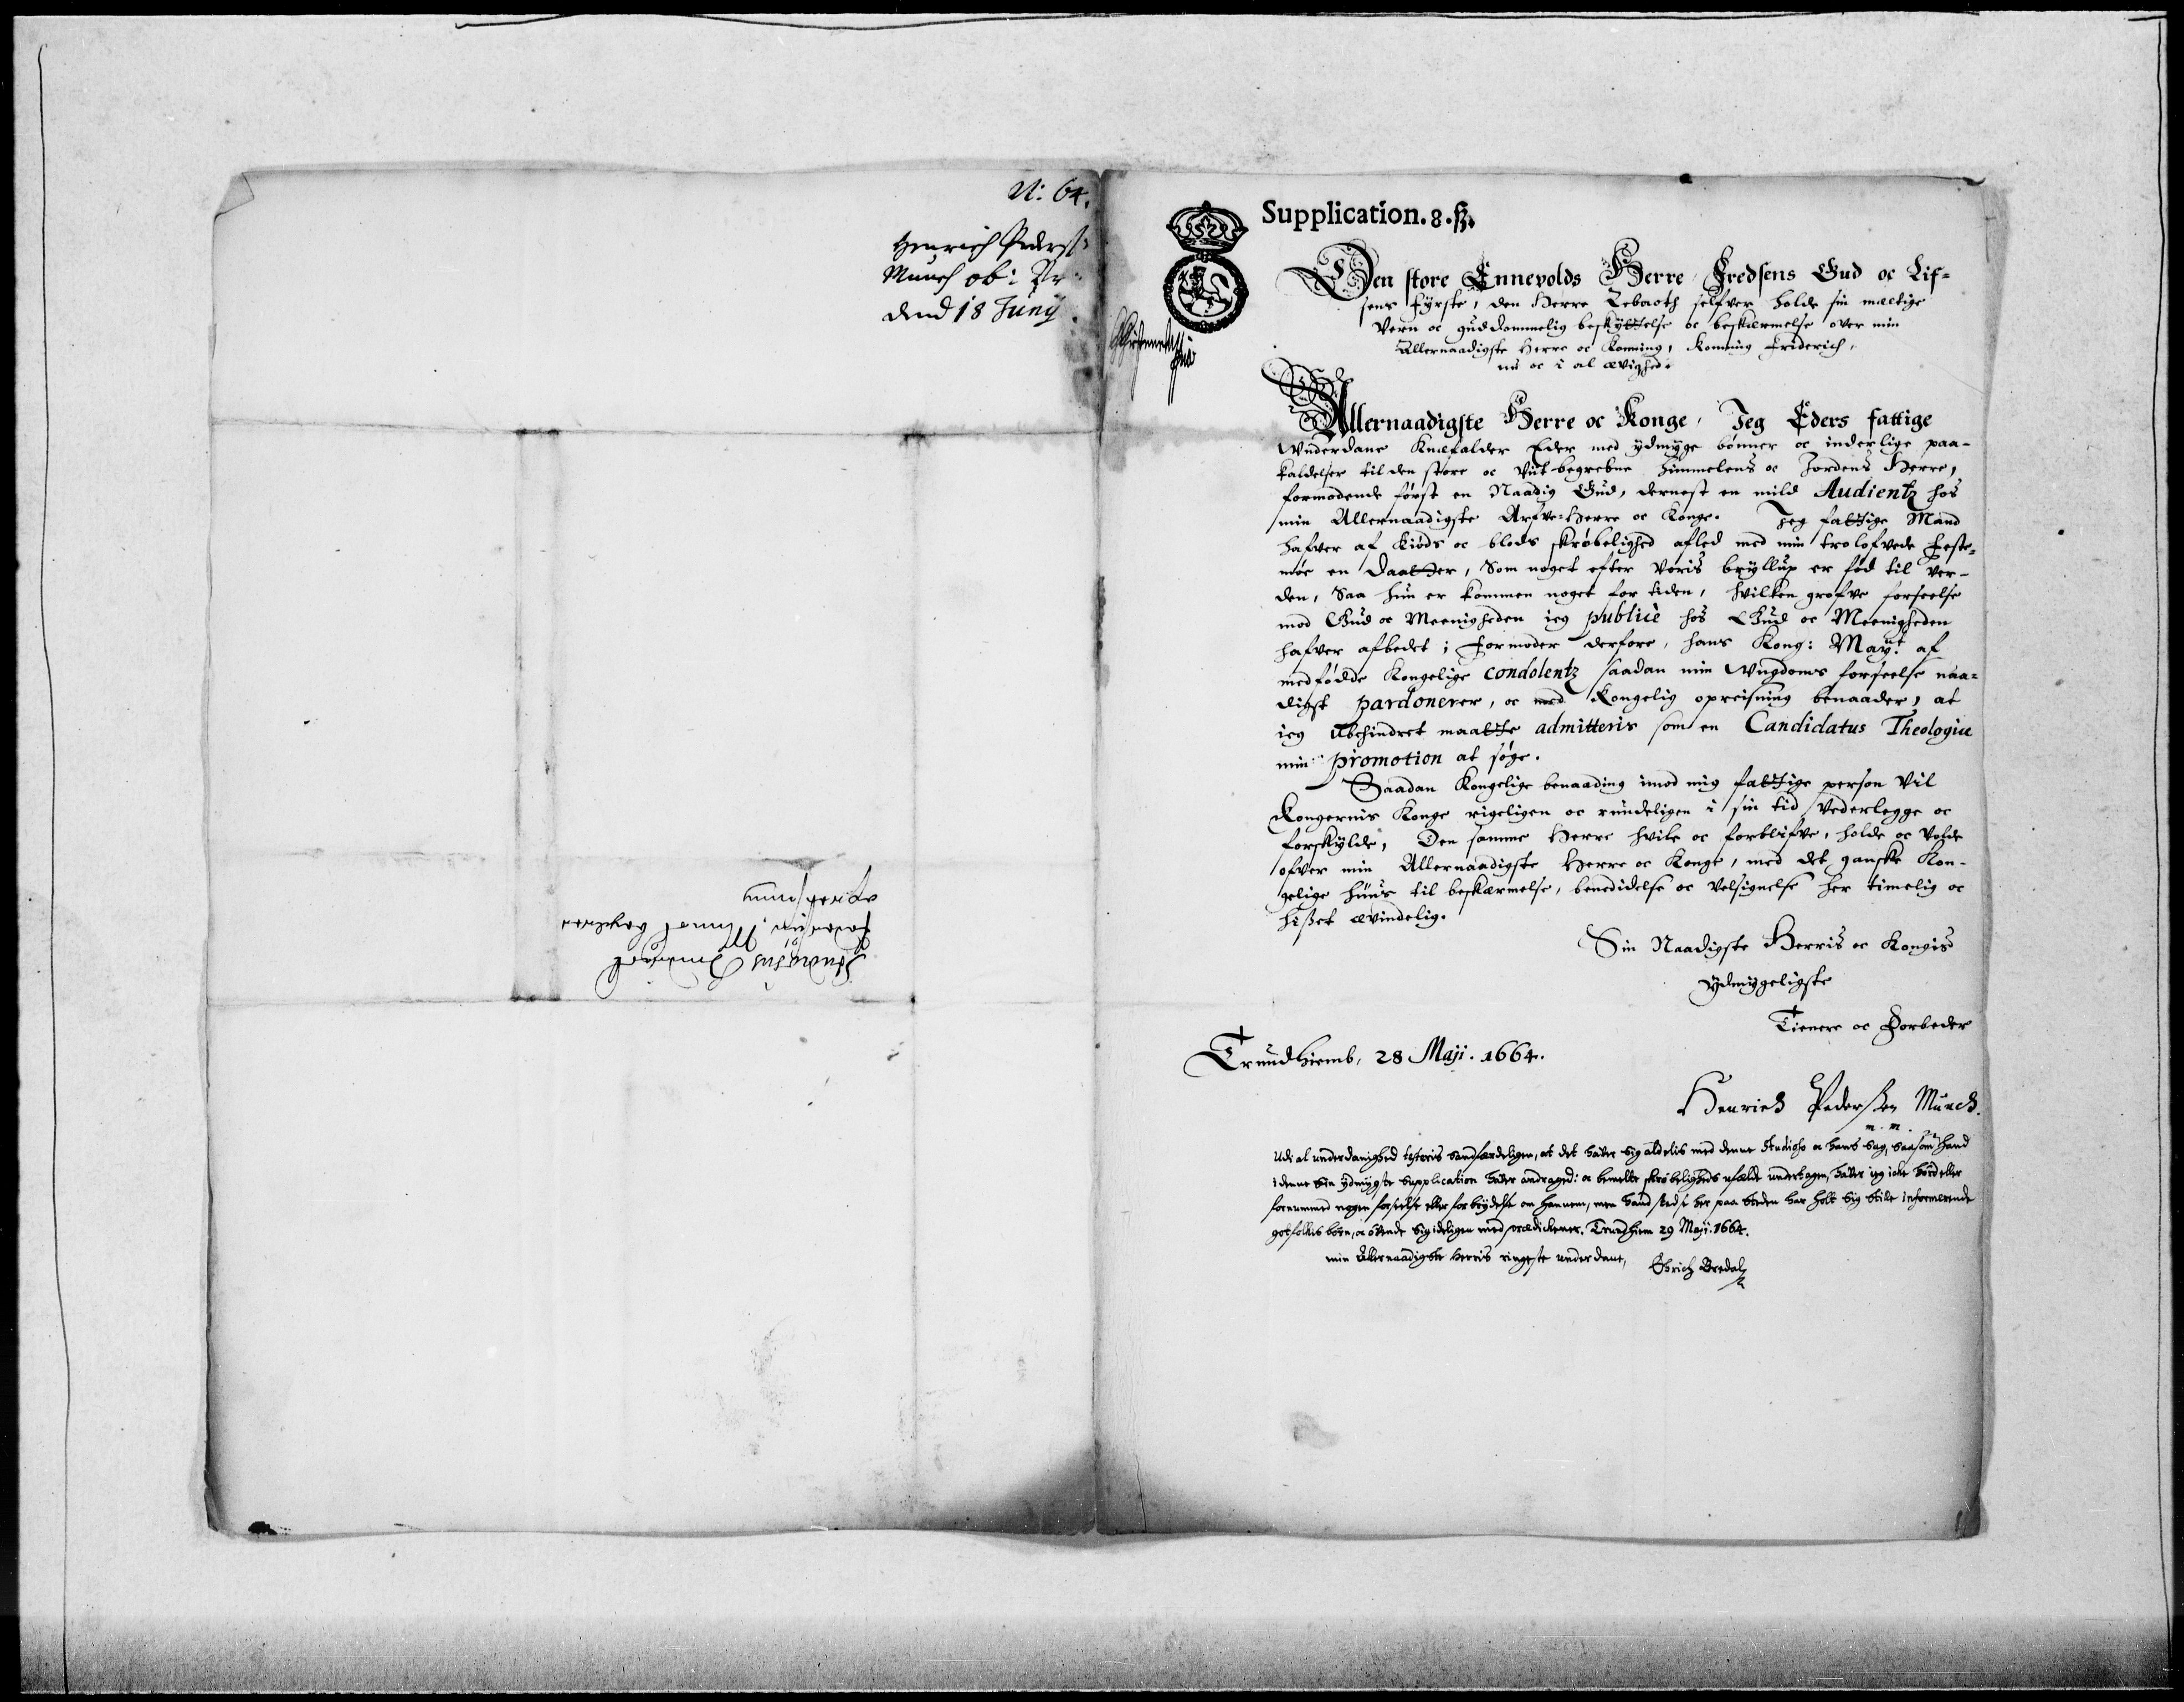 N: 64.
Henrich Pederss:
Munch ob:
dend 18 Junij.
Supplication. 8. ß.
Den store Ennevolds Herre Fredsens Gud oc Lif-
sens Fyrste, den Herre Zebaoth selfver holde sin mectige
Vern oc guddommelig beskyttelse oc beskermelse over min
Allernaadigste Herre oc Konning, Konning Friderich,
nu oc i al ævighed.
Allernaadigste Herre oc Konge, Jeg Eders fattige
Wnderdane Knæfalder Eder med ydmyge bønner oc inderlige paa-
kaldelser til den store oc Vut-begrebne Himmelens oc Jordens Herre,
formodende først en Naadig Gud, dernest en mild Audientz hos
min Allernaadigste Arfve-Herre oc Konge. Jeg fattige Mand
hafver af Kiøds oc blods skrøbelighed afled med min trolofvede Feste-
møe en Daatter, Som noget efter Voris bryllup er fød til Ver-
den, Saa hun er kommen noget for tiden, hvilken grofve forseelse
mod Gud oc Meenigheden ieg publicè hos Gud oc Meenigheden
hafver afbedet; Formoder derfore, hans Kong: Mayt. af
medfødde Kongelige condolentz saadan min Wngdoms forseelse naa-
digst pardonerer, oc med Kongelig opreisning benaader, at
ieg Ubehindret maatte admitteris som en Candidatus Theologiæ
min promotion at søge.
Saadan Kongelige benaading imod mig fattige person Vil
Kongernis Konge rigeligen oc rundeligen i sin tid Vederlegge oc
forskylde, Den samme Herre hvile oc forblifve, holde oc Volde
ofver min Allernaadigste Herre oc Konge, med det ganske Kon-
gelige Huus til beskermelse, benedidelse oc Velsignelse her timelig oc
hisset ævindelig.
Sin Naadigste Herris oc Kongis
ydmygeligste
Tienere oc Forbeder
Trundhiemb, 28 Maji. 1664.
Henrich Pederssen Munch.
m. m.
Udi al underdanighed testeris sandfærdeligen, at det haver sig aldelis med denne studioso oc hans sag, saasom hand
i denne sin ydmygste supplication haver andraged: oc bemelte skrøbeligheds ufælde undertagen, haver ieg icke hørd eller
fornummed nogen forseelse eller forbrydelse om hannem, men hand stedse her paa steden har holt sig stille informerende
got folkis børn, oc øvende sig ideligen med prædickener. Trundhiem 29 Maji. 1664.
min Allernaadigste Herris ringeste underdane, Ehrich Bredal